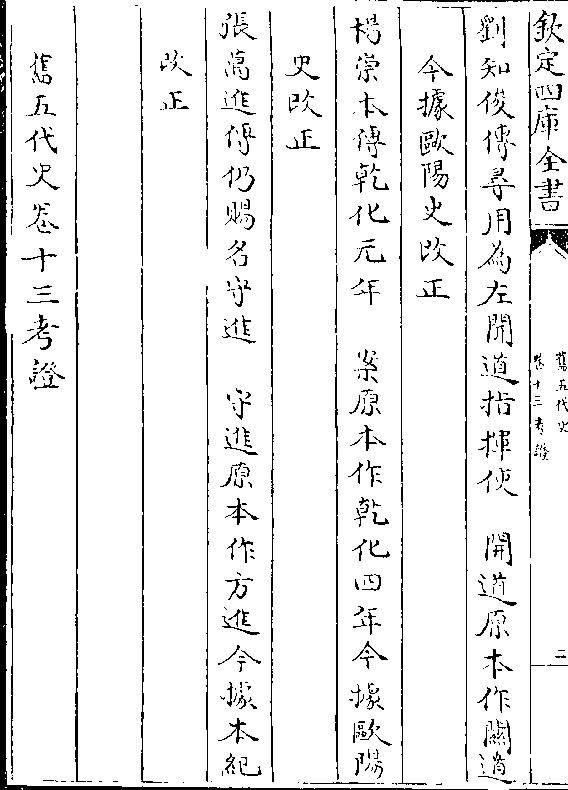 欽定四庫全書
舊五代史
卷十三考證
二
劉知俊傳尋用為左開道指揮使　開道原本作關道
今據歐陽史改正
楊崇本傳乾化元年　案原本作乾化四年今據歐陽
史改正
張萬進傳仍賜名守進　守進原本作方進今據本紀
改正
舊五代史卷十三考證